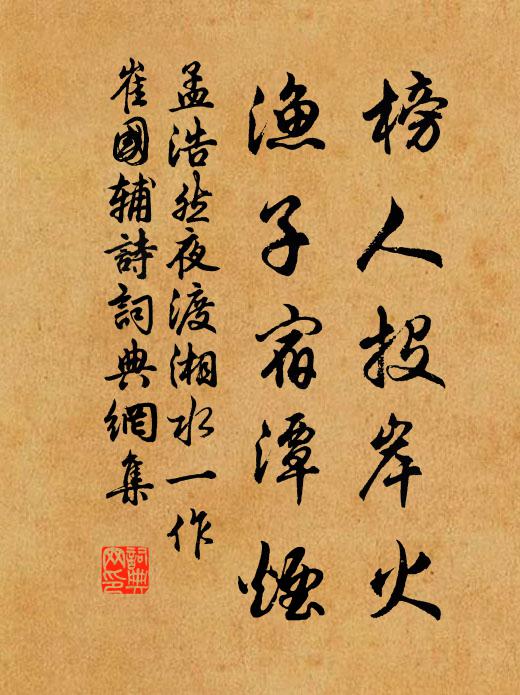 榜人投岸火
漁子宿潭煙
孟浩然夜渡湘水一作
崔國輔詩詞典網集
詞典網印